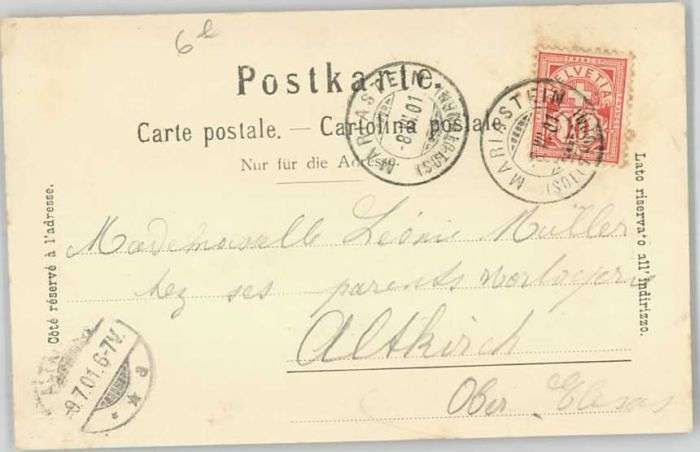 6
Postkarte.
Carte postale. — Cartolina postale
Nur für die Adresse.
MARIASTEIN
-8.VII.01
(SOLOTHURN)
MARIASTEIN
VII.01
HELVETIA
10
Côté réservé à l'adresse.
Lato riservato all' indirizzo.
Mademoiselle Léonie Müller
chez ses parents Horlogerie
Altkirch
Ober Elsass
ALTKIRCH
9.7.01.6-7V.